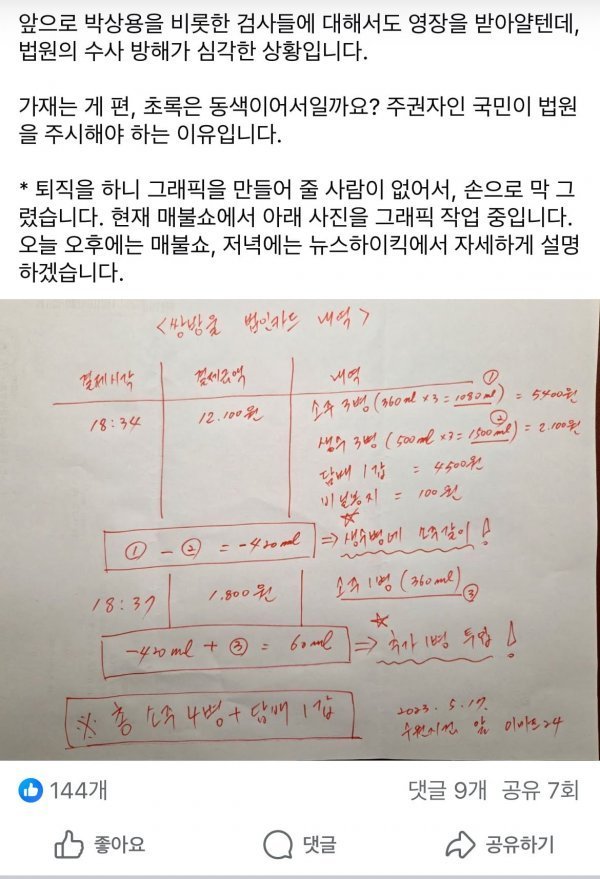 앞으로 박상용을 비롯한 검사들에 대해서도 영장을 받아얄텐데,
법원의 수사 방해가 심각한 상황입니다.
가재는 게 편, 초록은 동색이어서일까요? 주권자인 국민이 법원
을 주시해야 하는 이유입니다.
* 퇴직을 하니 그래픽을 만들어 줄 사람이 없어서, 손으로 막 그
렸습니다. 현재 매불쇼에서 아래 사진을 그래픽 작업 중입니다.
오늘 오후에는 매불쇼, 저녁에는 뉴스하이킥에서 자세하게 설명
하겠습니다.
<쌍방울 법인카드 내역>
결제시각 결제금액 내역
18:34 12.100원 소주 3병 (360ml x 3 = 1080ml) ① = 5400원
생수 3병 (500ml x 3 = 1500ml) ② = 2.100원
담배 1갑 = 4500원
비닐봉지 = 100원
① - ② = -420ml ⇒ ☆ 생수병에 소주갈이!
18:37 1.800원 소주 1병 (360ml) ③
-420ml + ③ = 60ml ⇒ ☆ 추가 1병 투입!
※ 총 소주 4병 + 담배 1갑
2023. 5. 17.
수원지검 앞 이마트24
144개 댓글 9개 공유 7회
좋아요 댓글 공유하기